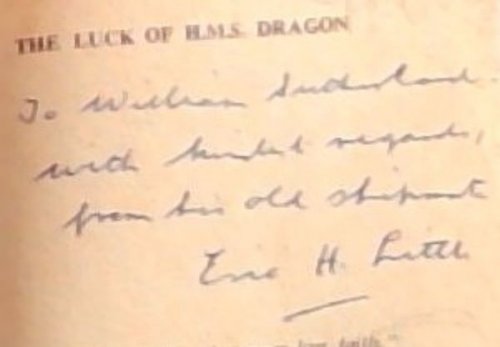 THE LUCK OF H.M.S. DRAGON
To William Sutherland
with kindest regards,
from his old shipmate
Eric H. Little